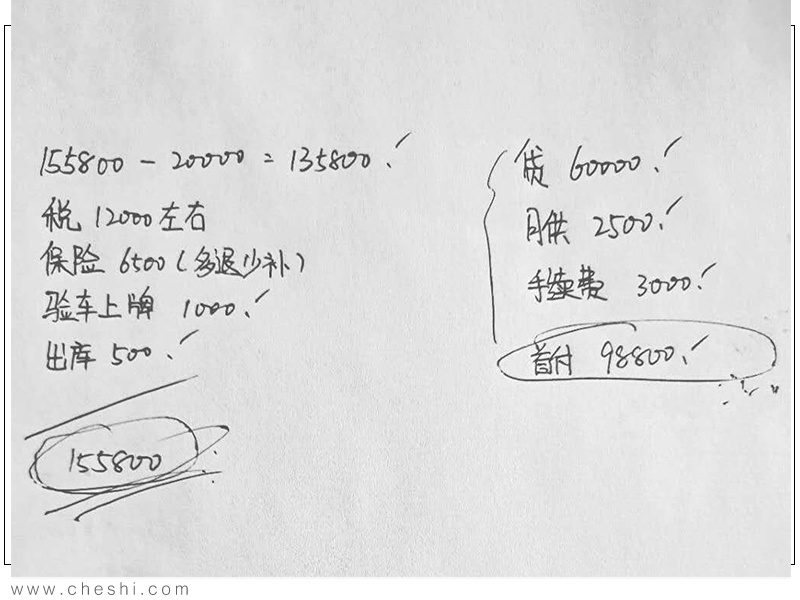 155800 - 20000 = 135800.✓
税 12000左右
保险 6500(多退少补)
验车上牌 1000.✓
出库 500.✓
155800
贷 60000.✓
月供 2500.✓
手续费 3000.✓
首付 98800.✓
www.cheshi.com